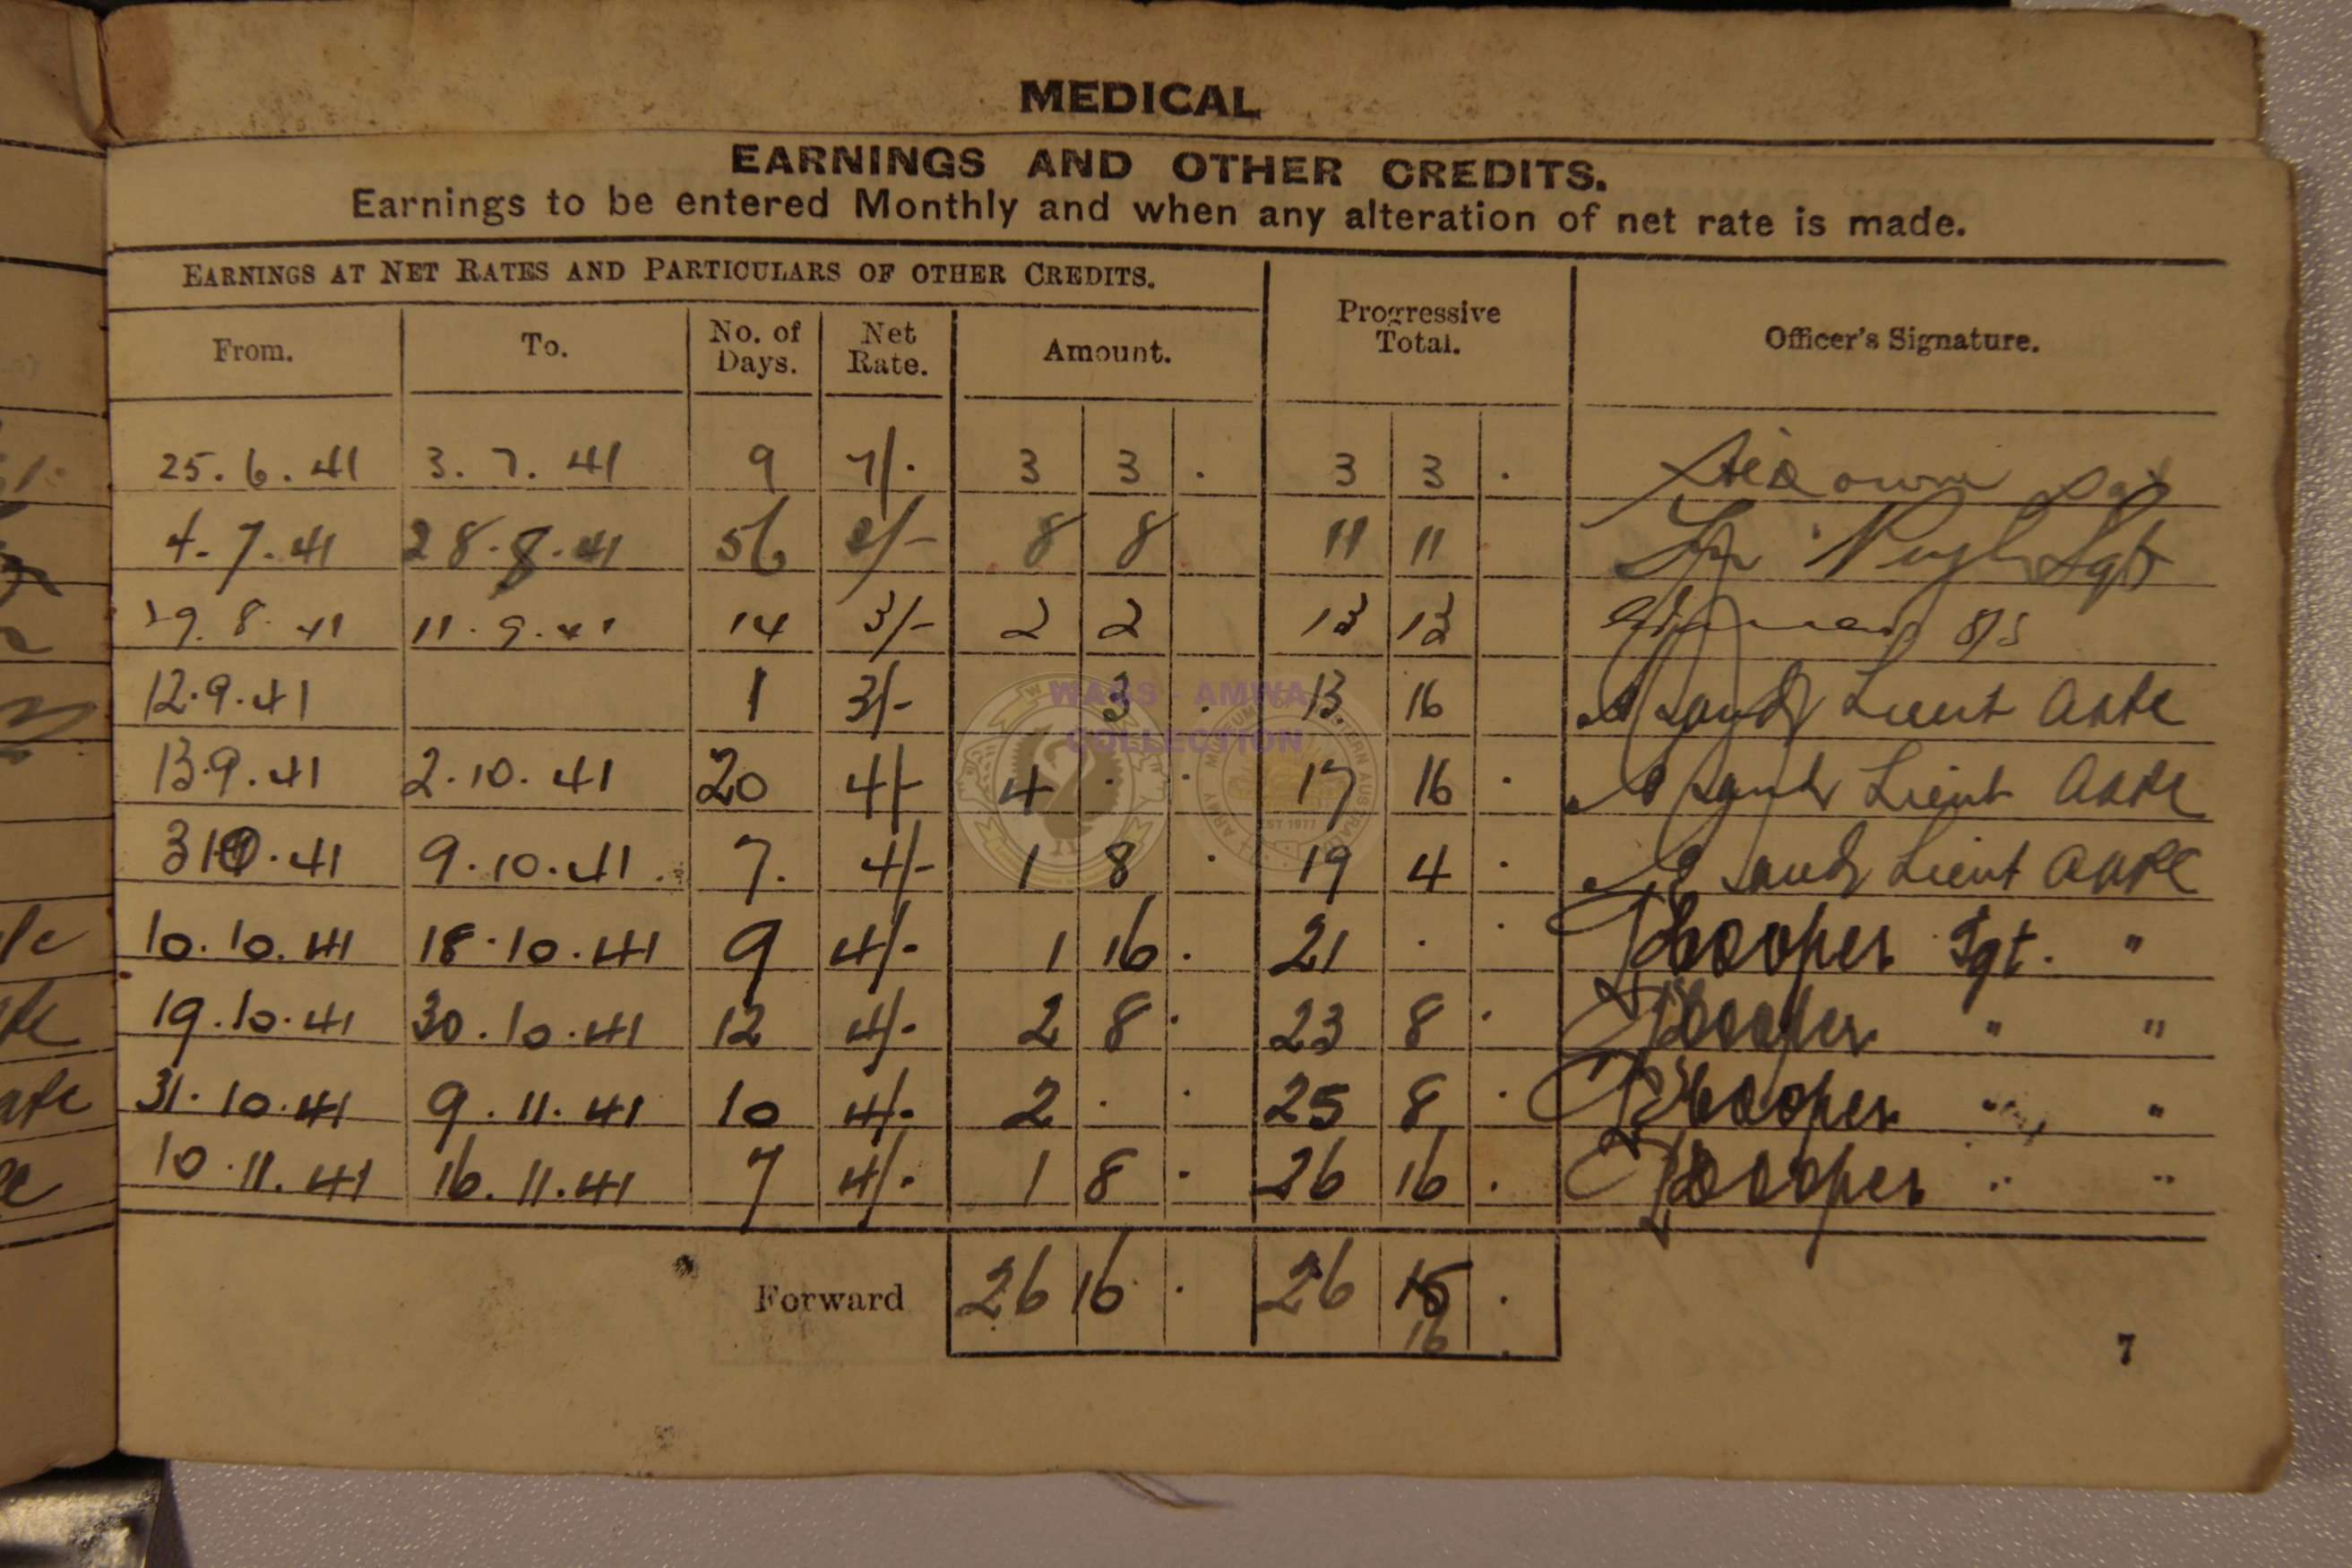 MEDICAL
EARNINGS AND OTHER CREDITS.
Earnings to be entered Monthly and when any alteration of net rate is made.
EARNINGS AT NET RATES AND PARTICULARS OF OTHER CREDITS.
From. To. No. of Days. Net Rate. Amount. Progressive Total. Officer's Signature.
25.6.41 3.7.41 9 7/. 3 3 . 3 3 .
4.7.41 28.8.41 56 8 8 11 11 Sgt
29.8.41 11.9.41 14 3/- 2 2 13 13
12.9.41 1 3/- 3 . 13 16 Lieut
13.9.41 2.10.41 20 4/- 4 . . 17 16 . Lieut
3 10.41 9.10.41. 7. 4/- 1 8 . 19 4 . Lieut
10.10.41 18.10.41 9 4/- 1 16 . 21 . . Cooper Sgt. "
19.10.41 30.10.41 12 4/- 2 8 . 23 8 . Cooper " "
31.10.41 9.11.41 10 4/- 2 . . 25 8 . Cooper " "
10.11.41 16.11.41 7 4/- 1 8 . 26 16 . Cooper " "
Forward 26 16 . 26 15 .
16
7
WAGS - AMWA
COLLECTION